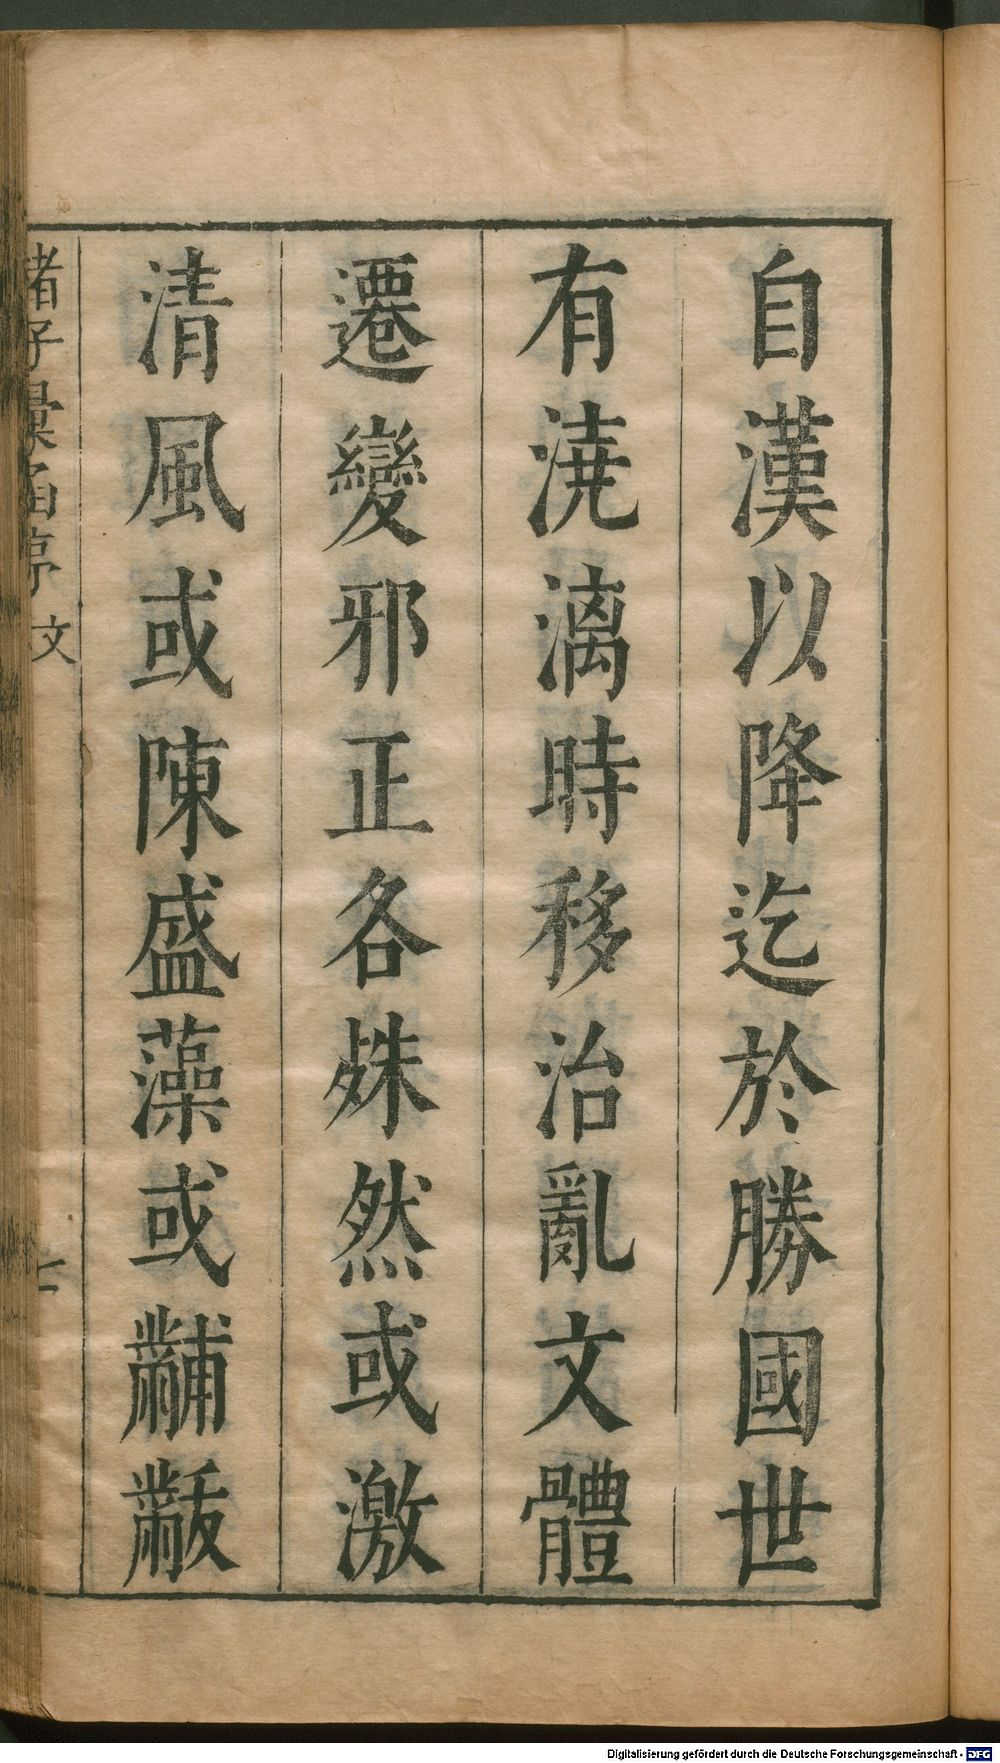 自漢以降迄於勝國世
有澆漓時移治亂文體
遷變邪正各殊然或激
清風或陳盛藻或黼黻
諸子彙函序 文 七
Digitalisierung gefördert durch die Deutsche Forschungsgemeinschaft - DFG